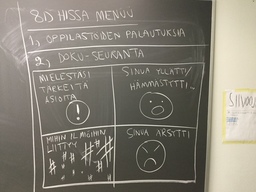 8D HISSA MENUU
1, OPPILASTÖIDEN PALAUTUKSIA
2, DOKU-SEURANTA
MIELESTÄSI
TÄRKEITÄ
ASIOITA
!
SINUA YLLÄTTI/
HÄMMÄSTYTTI...
MIHIN ILMIÖIHIN
LIITTYY
# # # #
SINUA ÄRSYTTI
SIIVOU